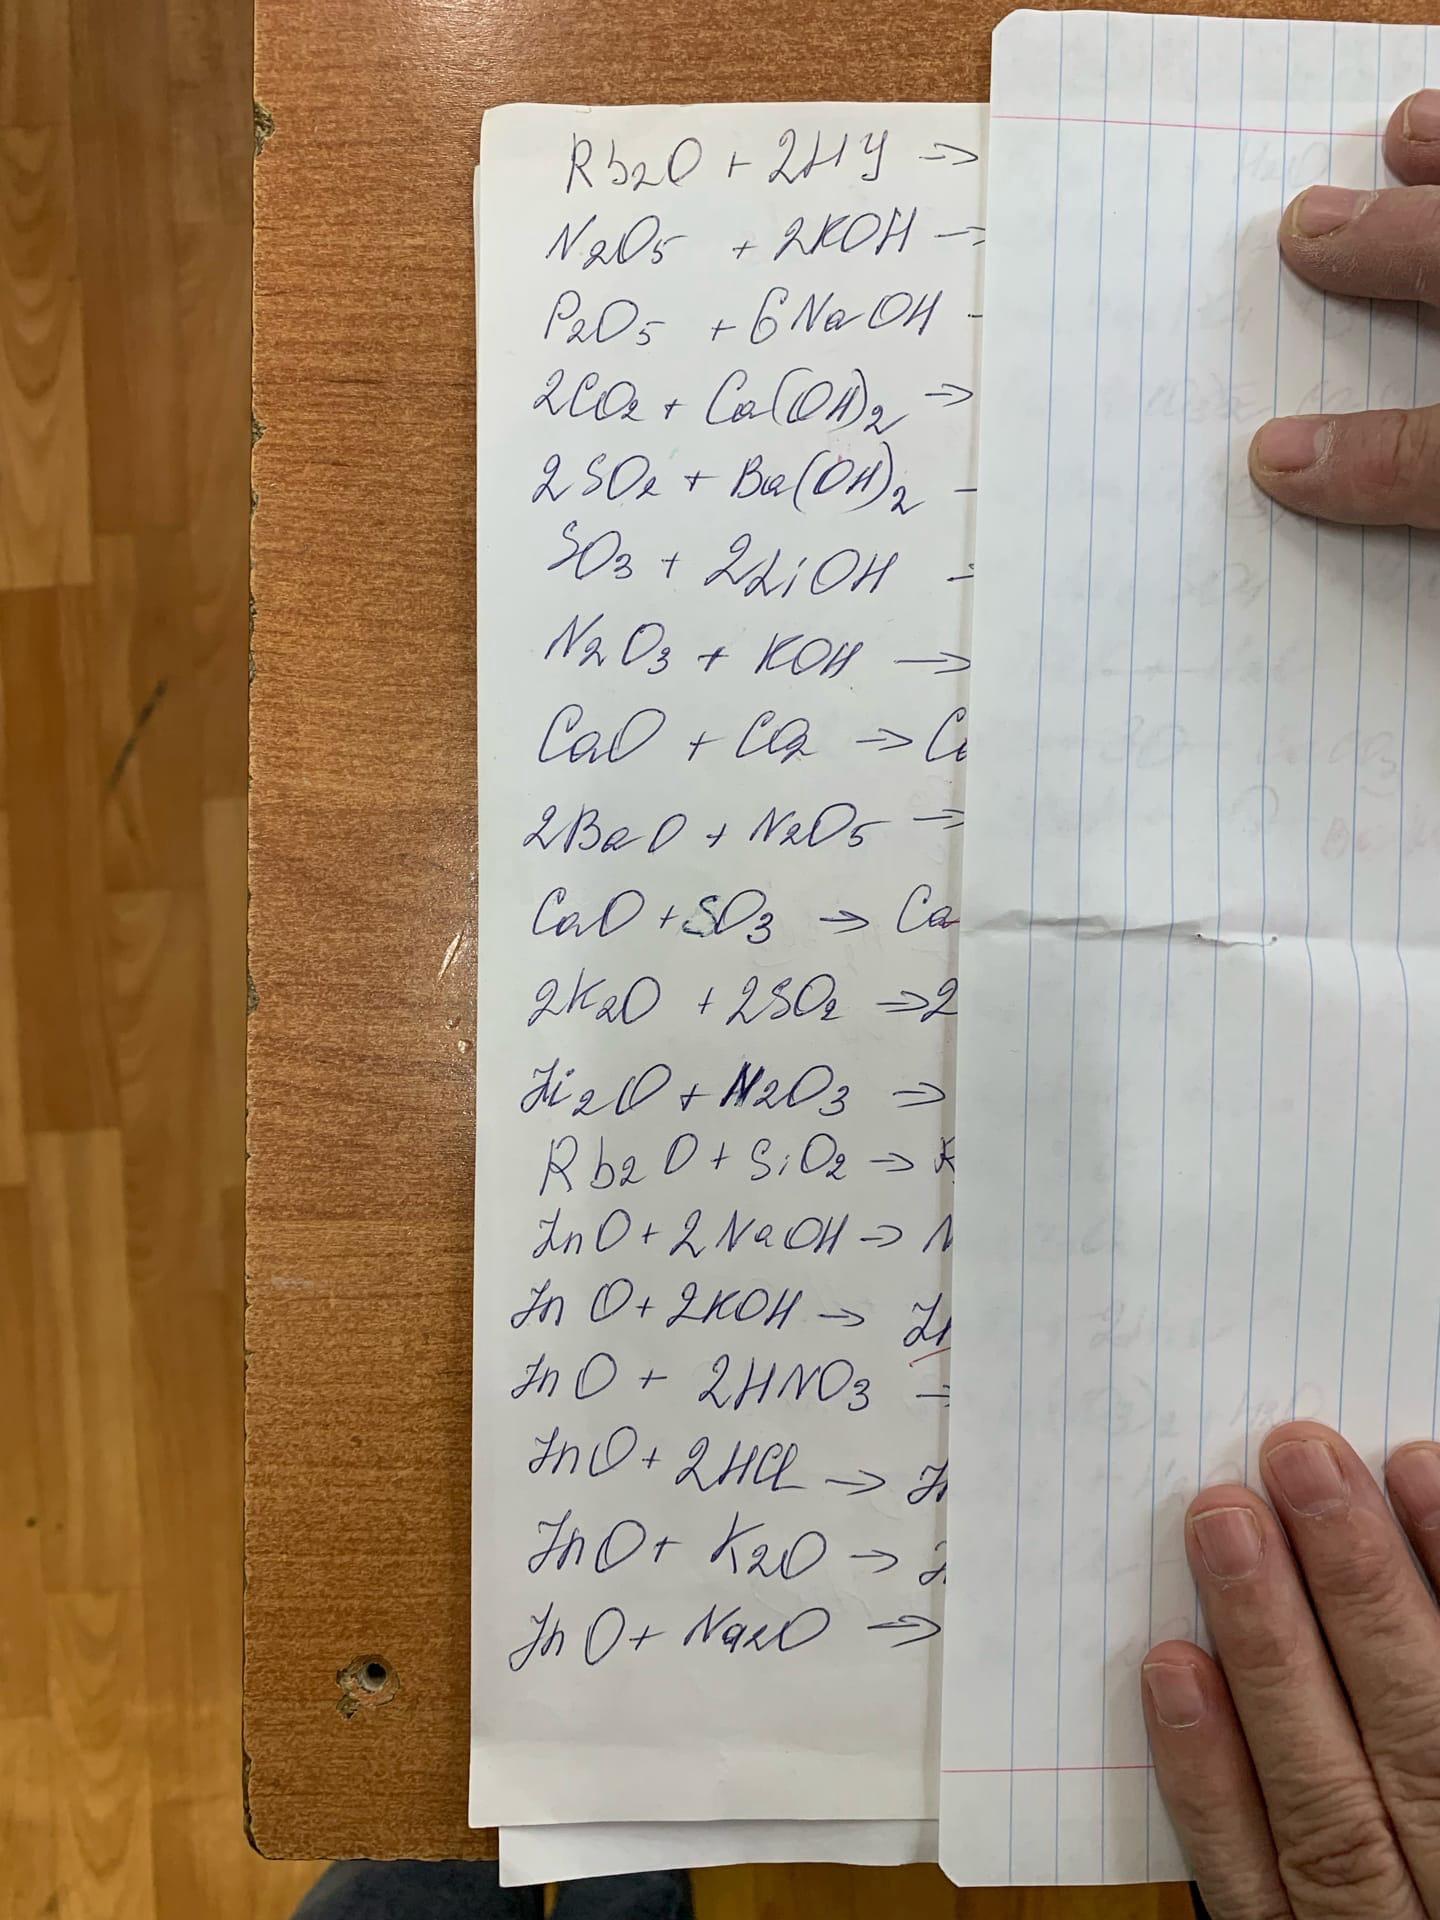 Rb2O + 2HJ →
N2O5 + 2KOH →
P2O5 + 6NaOH -
2CO2 + Ca(OH)2 →
2SO2 + Ba(OH)2 -
SO3 + 2LiOH -
N2O3 + KOH →
CaO + CO2 → C
2BaO + N2O5 →
CaO + SO3 → Ca
2K2O + 2SO2 → 2
Li2O + N2O3 →
Rb2O + SiO2 → R
ZnO + 2NaOH → N
ZnO + 2KOH → Zn
ZnO + 2HNO3 →
ZnO + 2HCl → Zn
ZnO + K2O → Z
ZnO + Na2O →